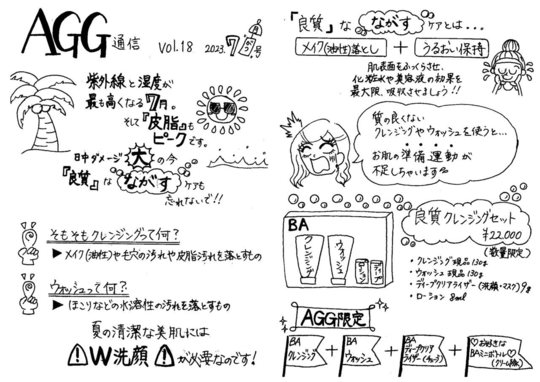 AGG通信 Vol.18 2023.7月号
紫外線と湿度が
最も高くなる7月。
そして『皮脂』も
ピークです。
日中ダメージ大の今
『良質』なながすケアも
忘れないで!!
そもそもクレンジングって何?
▶メイク(油性)や毛穴の汚れや皮脂汚れを落とすもの
ウォッシュって何?
▶ほこりなどの水溶性の汚れを落とすもの
夏の清潔な美肌には
W洗顔が必要なのです!
『良質』なながすケアとは…
メイク(油性)落とし + うるおい保持
肌表面をふっくらさせ、
化粧水や美容液の効果を
最大限、吸収させましょう!!
質の良くない
クレンジングやウォッシュを使うと…
お肌の準備運動が
不足しちゃいます
良質クレンジングセット
¥22,000
(数量限定)
BA
クレンジング
ウォッシュ
・クレンジング現品130g
・ウォッシュ現品130g
・ディープクリアライザー(洗顔・マスク)9g
・ローション 8ml
AGG限定
BAクレンジング + BAウォッシュ + BAディープクリアライザー + ♡お好きなBAミニボトル♡